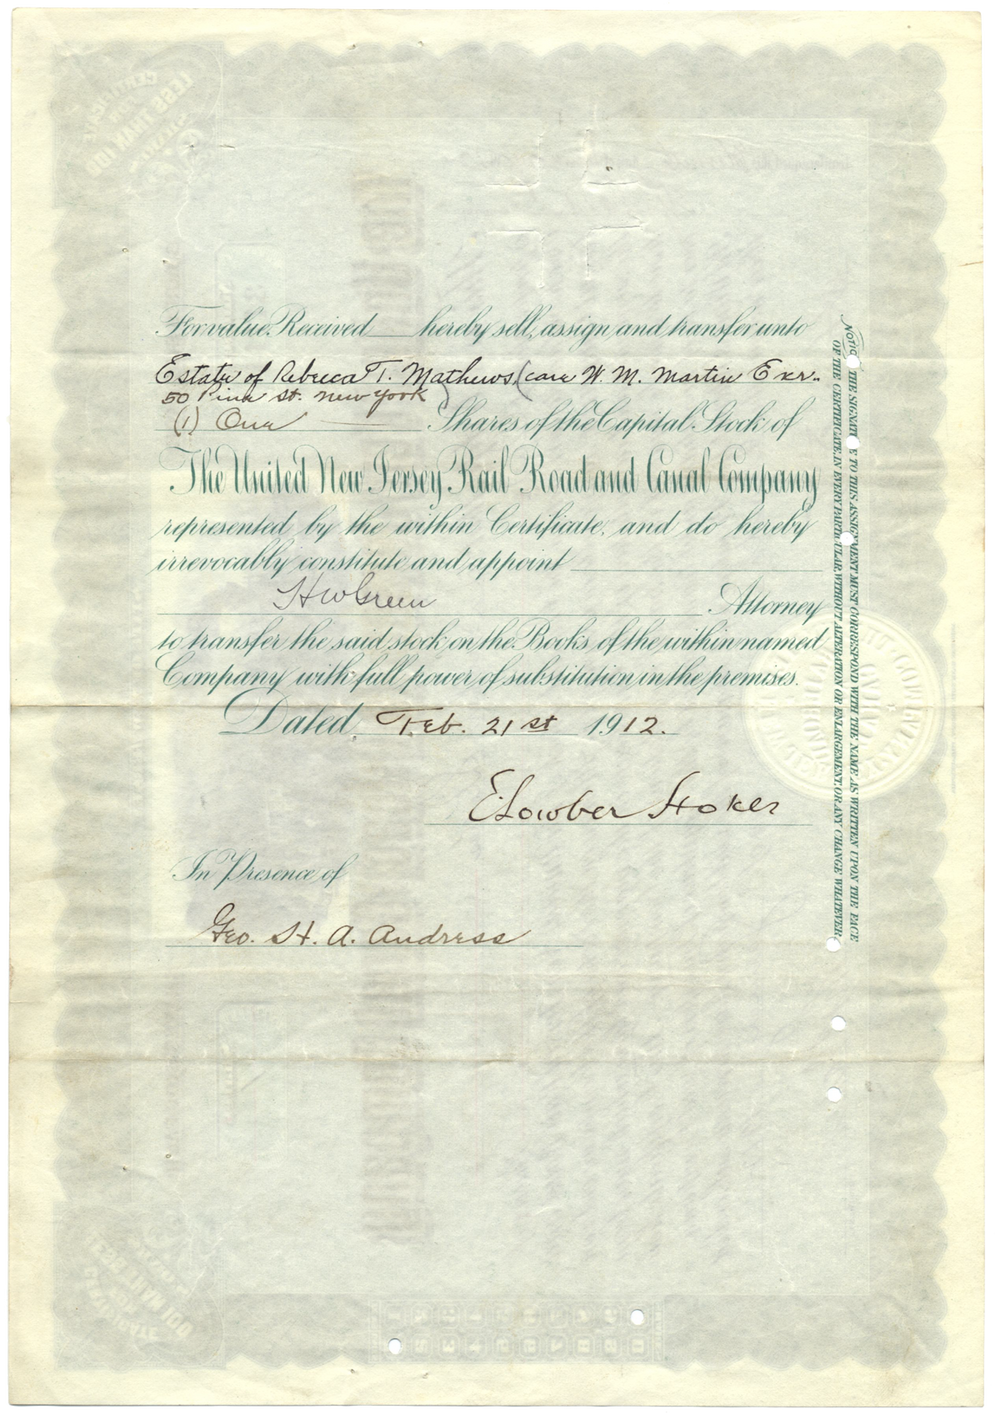 For value Received hereby sell, assign and transfer unto
Estate of Rebecca T. Mathews (care W. M. Martin Exr.
50 Pine St. New York)
(1) One Shares of the Capital Stock of
The United New Jersey Rail Road and Canal Company
represented by the within Certificate, and do hereby
irrevocably constitute and appoint
H W Green Attorney
to transfer the said stock on the Books of the within named
Company with full power of substitution in the premises.
Dated, Feb. 21st 1912.
E Lowber Stokes
In Presence of
Geo. H. A. Andress
NOTICE THE SIGNATURE TO THIS ASSIGNMENT MUST CORRESPOND WITH THE NAME AS WRITTEN UPON THE FACE
OF THE CERTIFICATE IN EVERY PARTICULAR WITHOUT ALTERATION OR ENLARGEMENT OR ANY CHANGE WHATEVER.
LESS THAN 100